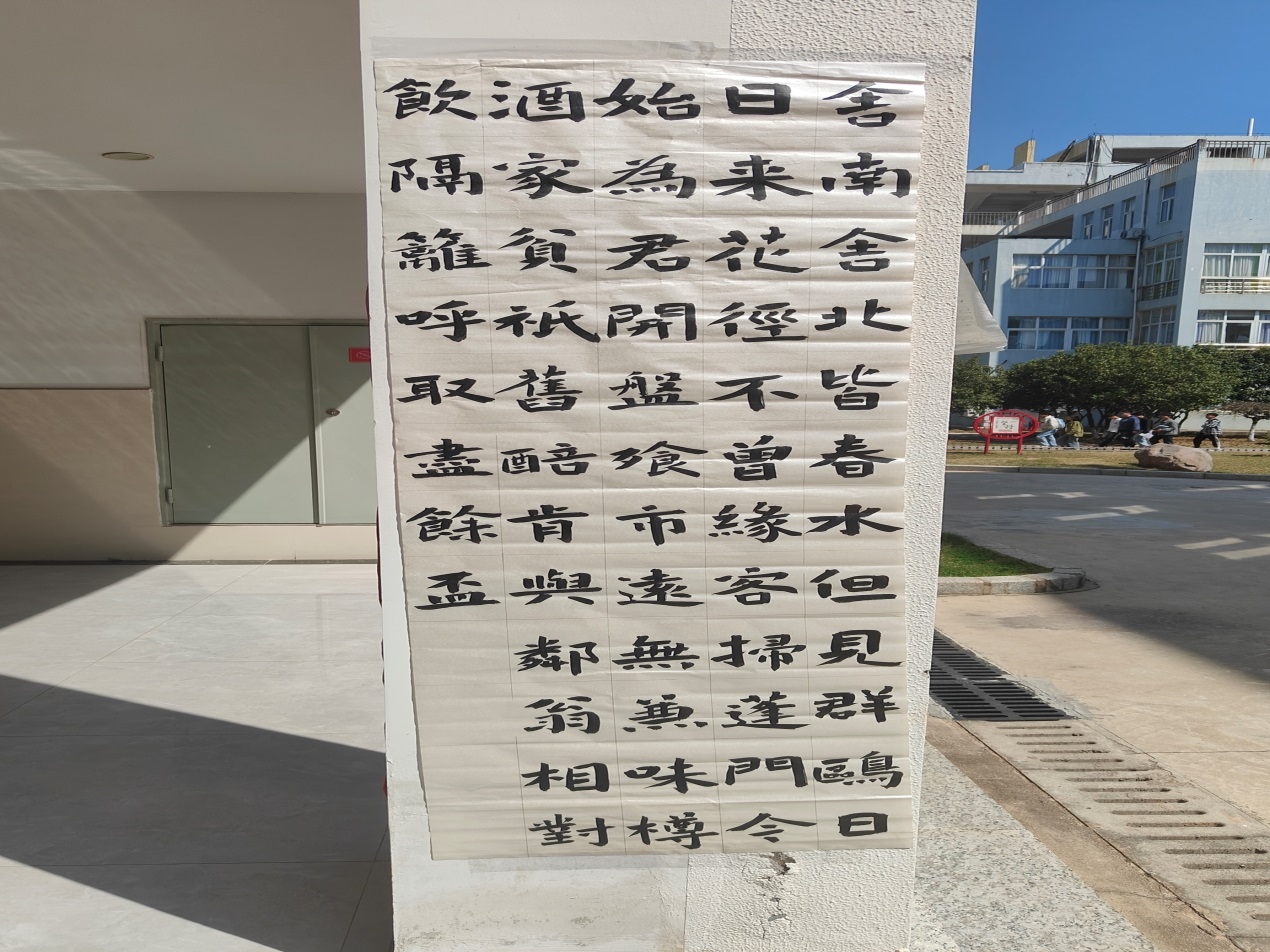 舍南舍北皆春水但見群鷗日
日来花徑不曾緣客掃蓬門今
始為君開盤飧市遠無兼味樽
酒家貧祇舊醅肯與鄰翁相對
飲隔籬呼取盡餘盃